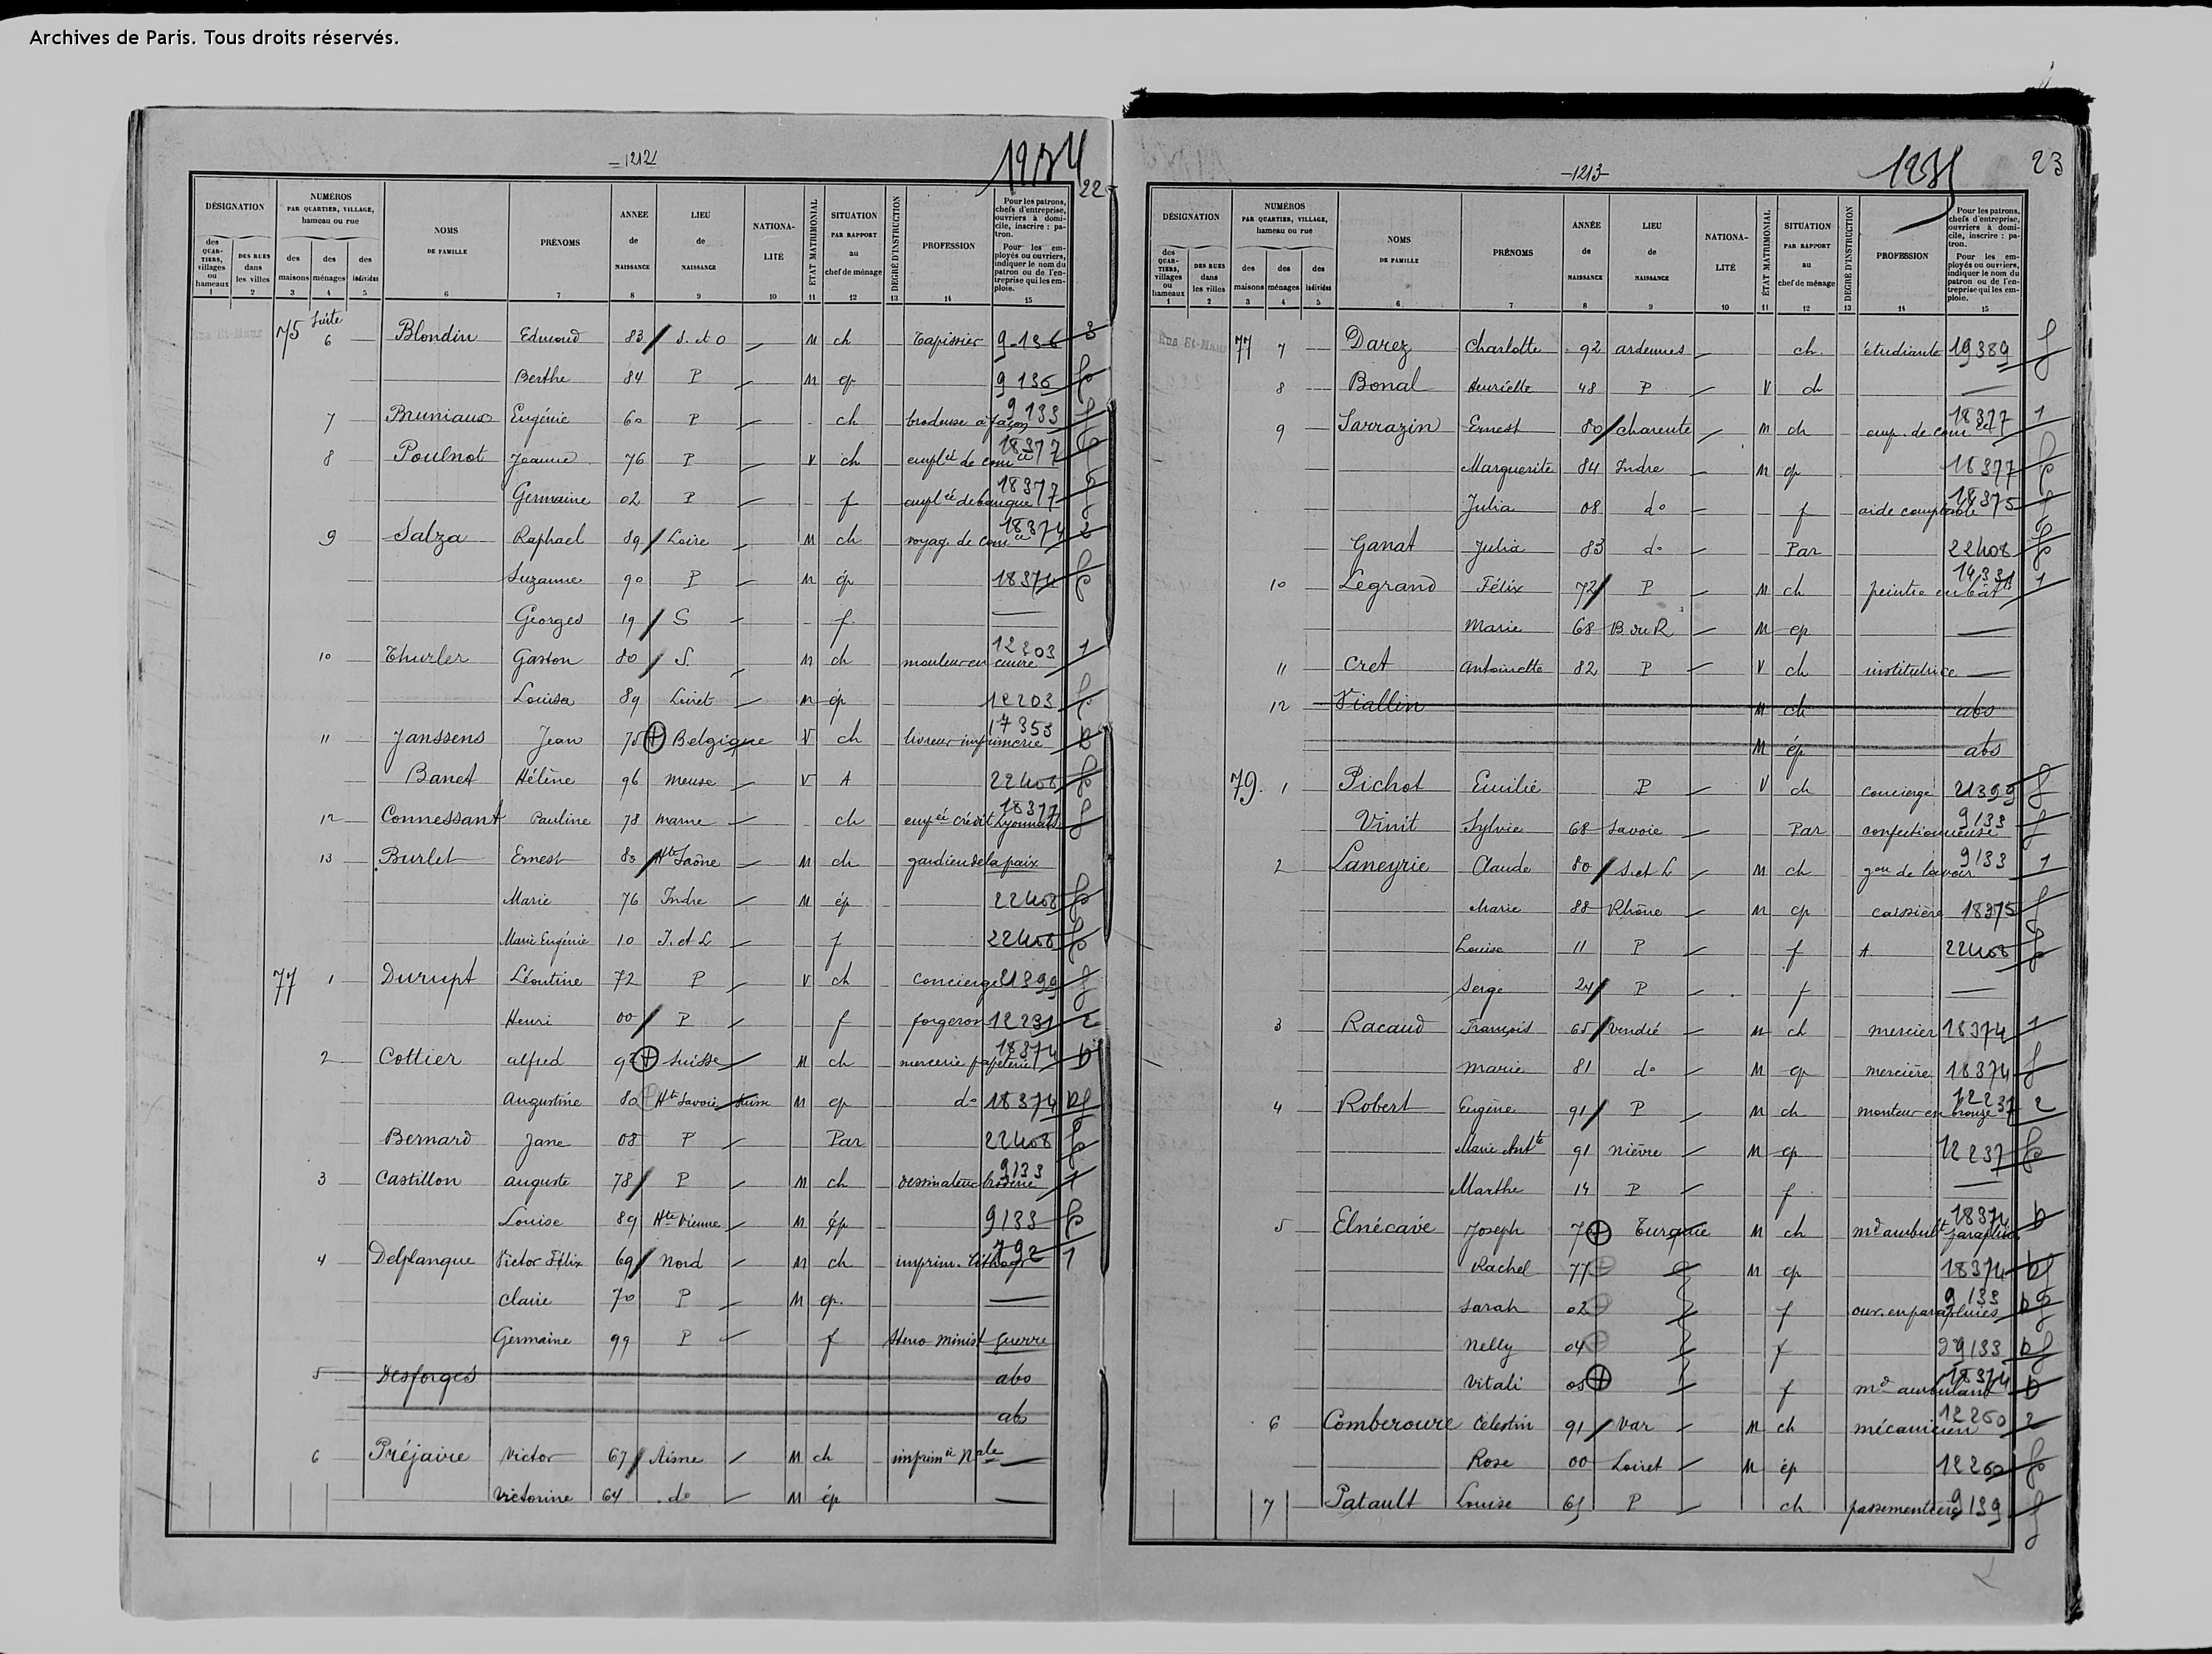 Archives de Paris. Tous droits réservés.
-1212-
22
DÉSIGNATION
des QUARTIERS, villages ou hameaux
DES RUES dans les villes
NUMÉROS PAR QUARTIER, VILLAGE, hameau ou rue
des maisons
des ménages
des individus
NOMS DE FAMILLE
PRÉNOMS
ANNÉE de NAISSANCE
LIEU de NAISSANCE
NATIONALITÉ
ÉTAT MATRIMONIAL
SITUATION PAR RAPPORT au chef de ménage
DEGRÉ D'INSTRUCTION
PROFESSION
Pour les patrons, chefs d'entreprise, ouvriers à domicile, inscrire : patron.
Pour les employés ou ouvriers, indiquer le nom du patron ou de l'entreprise qui les emploie.
1 2 3 4 5 6 7 8 9 10 11 12 13 14 15
75 suite 6 Blondin Edmond 83 S. et O M ch Tapissier 9-136 3
Berthe 84 P M ep 9 136
7 Bruniaux Eugénie 60 P ch brodeuse à façon 9 133
8 Poulnot Jeanne 76 P V ch emplée de comce 18377
Germaine 02 P f emplée de banque 18377
9 Salza Raphael 89 Loire M ch voyag. de comce 18374 2
Suzanne 90 P M ép 18374
Georges 19 S f
10 Thurler Gaston 80 S. M ch mouleur en cuivre 12203 1
Louisa 89 Loiret M ép 12203
11 Janssens Jean 75 Belgique V ch livreur imprimerie 17353
Banet Hélène 96 Meuse V A 22408
12 Connessant Pauline 78 Marne ch empée crédit Lyonnais 18377
13 Burlet Ernest 80 Hte Saône M ch gardien de la paix
Marie 76 Indre M ép 22408
Marie Eugénie 10 I. et L f 22408
77 1 Durupt Léontine 72 P V ch concierge 21399
Henri 00 P f forgeron 12231 2
2 Cottier alfred 92 Suisse M ch mercerie papeterie 18374
Augustine 80 Hte Savoie Suisse M ep do 18374
Bernard Jane 08 P Par 22408
3 Castillon auguste 78 P M ch dessinateur broderie 9133 1
Louise 89 Hte Vienne M ép 9133
4 Delplanque Victor Félix 69 Nord M ch imprim. lithogr 792 1
Claire 70 P M ep.
Germaine 99 P f Steno minist guerre
5 Desforges abs
abs
6 Préjaire Victor 67 Aisne M ch imprimie Nale
Victorine 64 do M ép
-1213-
23
DÉSIGNATION
des QUARTIERS, villages ou hameaux
DES RUES dans les villes
NUMÉROS PAR QUARTIER, VILLAGE, hameau ou rue
des maisons
des ménages
des individus
NOMS DE FAMILLE
PRÉNOMS
ANNÉE de NAISSANCE
LIEU de NAISSANCE
NATIONALITÉ
ÉTAT MATRIMONIAL
SITUATION PAR RAPPORT au chef de ménage
DEGRÉ D'INSTRUCTION
PROFESSION
Pour les patrons, chefs d'entreprise, ouvriers à domicile, inscrire : patron.
Pour les employés ou ouvriers, indiquer le nom du patron ou de l'entreprise qui les emploie.
1 2 3 4 5 6 7 8 9 10 11 12 13 14 15
77 7 Darez Charlotte 92 ardennes ch. étudiante 19389
8 Bonal Henriette 48 P V ch
9 Sarrazin Ernest 80 Charente M ch emp. de comce 18377 1
Marguerite 84 Indre M ep 18377
Julia 08 do f aide comptable 18375
Ganat Julia 83 do Par 22408
10 Legrand Félix 72 P M ch peintre en batt 14331 1
Marie 68 B du R M ep
11 Cret Antoinette 82 P V ch institutrice
12 Viallin M ch abs
M ép abs
79. 1 Pichot Emilie P V ch concierge 21399
Vinit Sylvie 68 Savoie Par confectionneuse 9133
2 Laneyrie Claude 80 S. et L M ch gon de lavoir 9133 1
Marie 88 Rhône M ep caissière 18375
Louise 11 P f A 22408
Serge 24 P f
3 Racaud François 65 Vendée M ch mercier 18374 1
Marie 81 do M ep mercière 18374
4 Robert Eugène 91 P M ch monteur en bronze 12237 2
Marie Antte 91 Nièvre M ep 12237
Marthe 14 P f
5 Elnécavé Joseph 76 Turquie M ch md ambult parapluies 18374
Rachel 77 M ep 18374
Sarah 02 f ouv. en parapluies 9133
Nelly 04 f 9133
Vitali 05 f md ambulant 18374
6 Comberoure Célestin 91 Var M ch mécanicien 12260 2
Rose 00 Loiret M ép 12260
7 Patault Louise 65 P ch passementière 9139